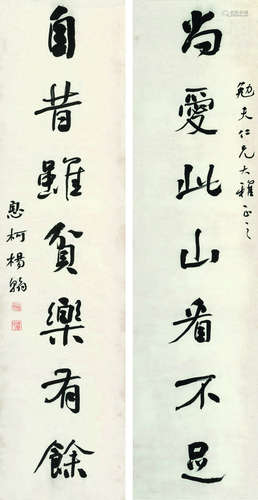 尚愛此山看不足
勉夫仁兄大雅正之
自昔雖貧樂有餘
息柯楊翰